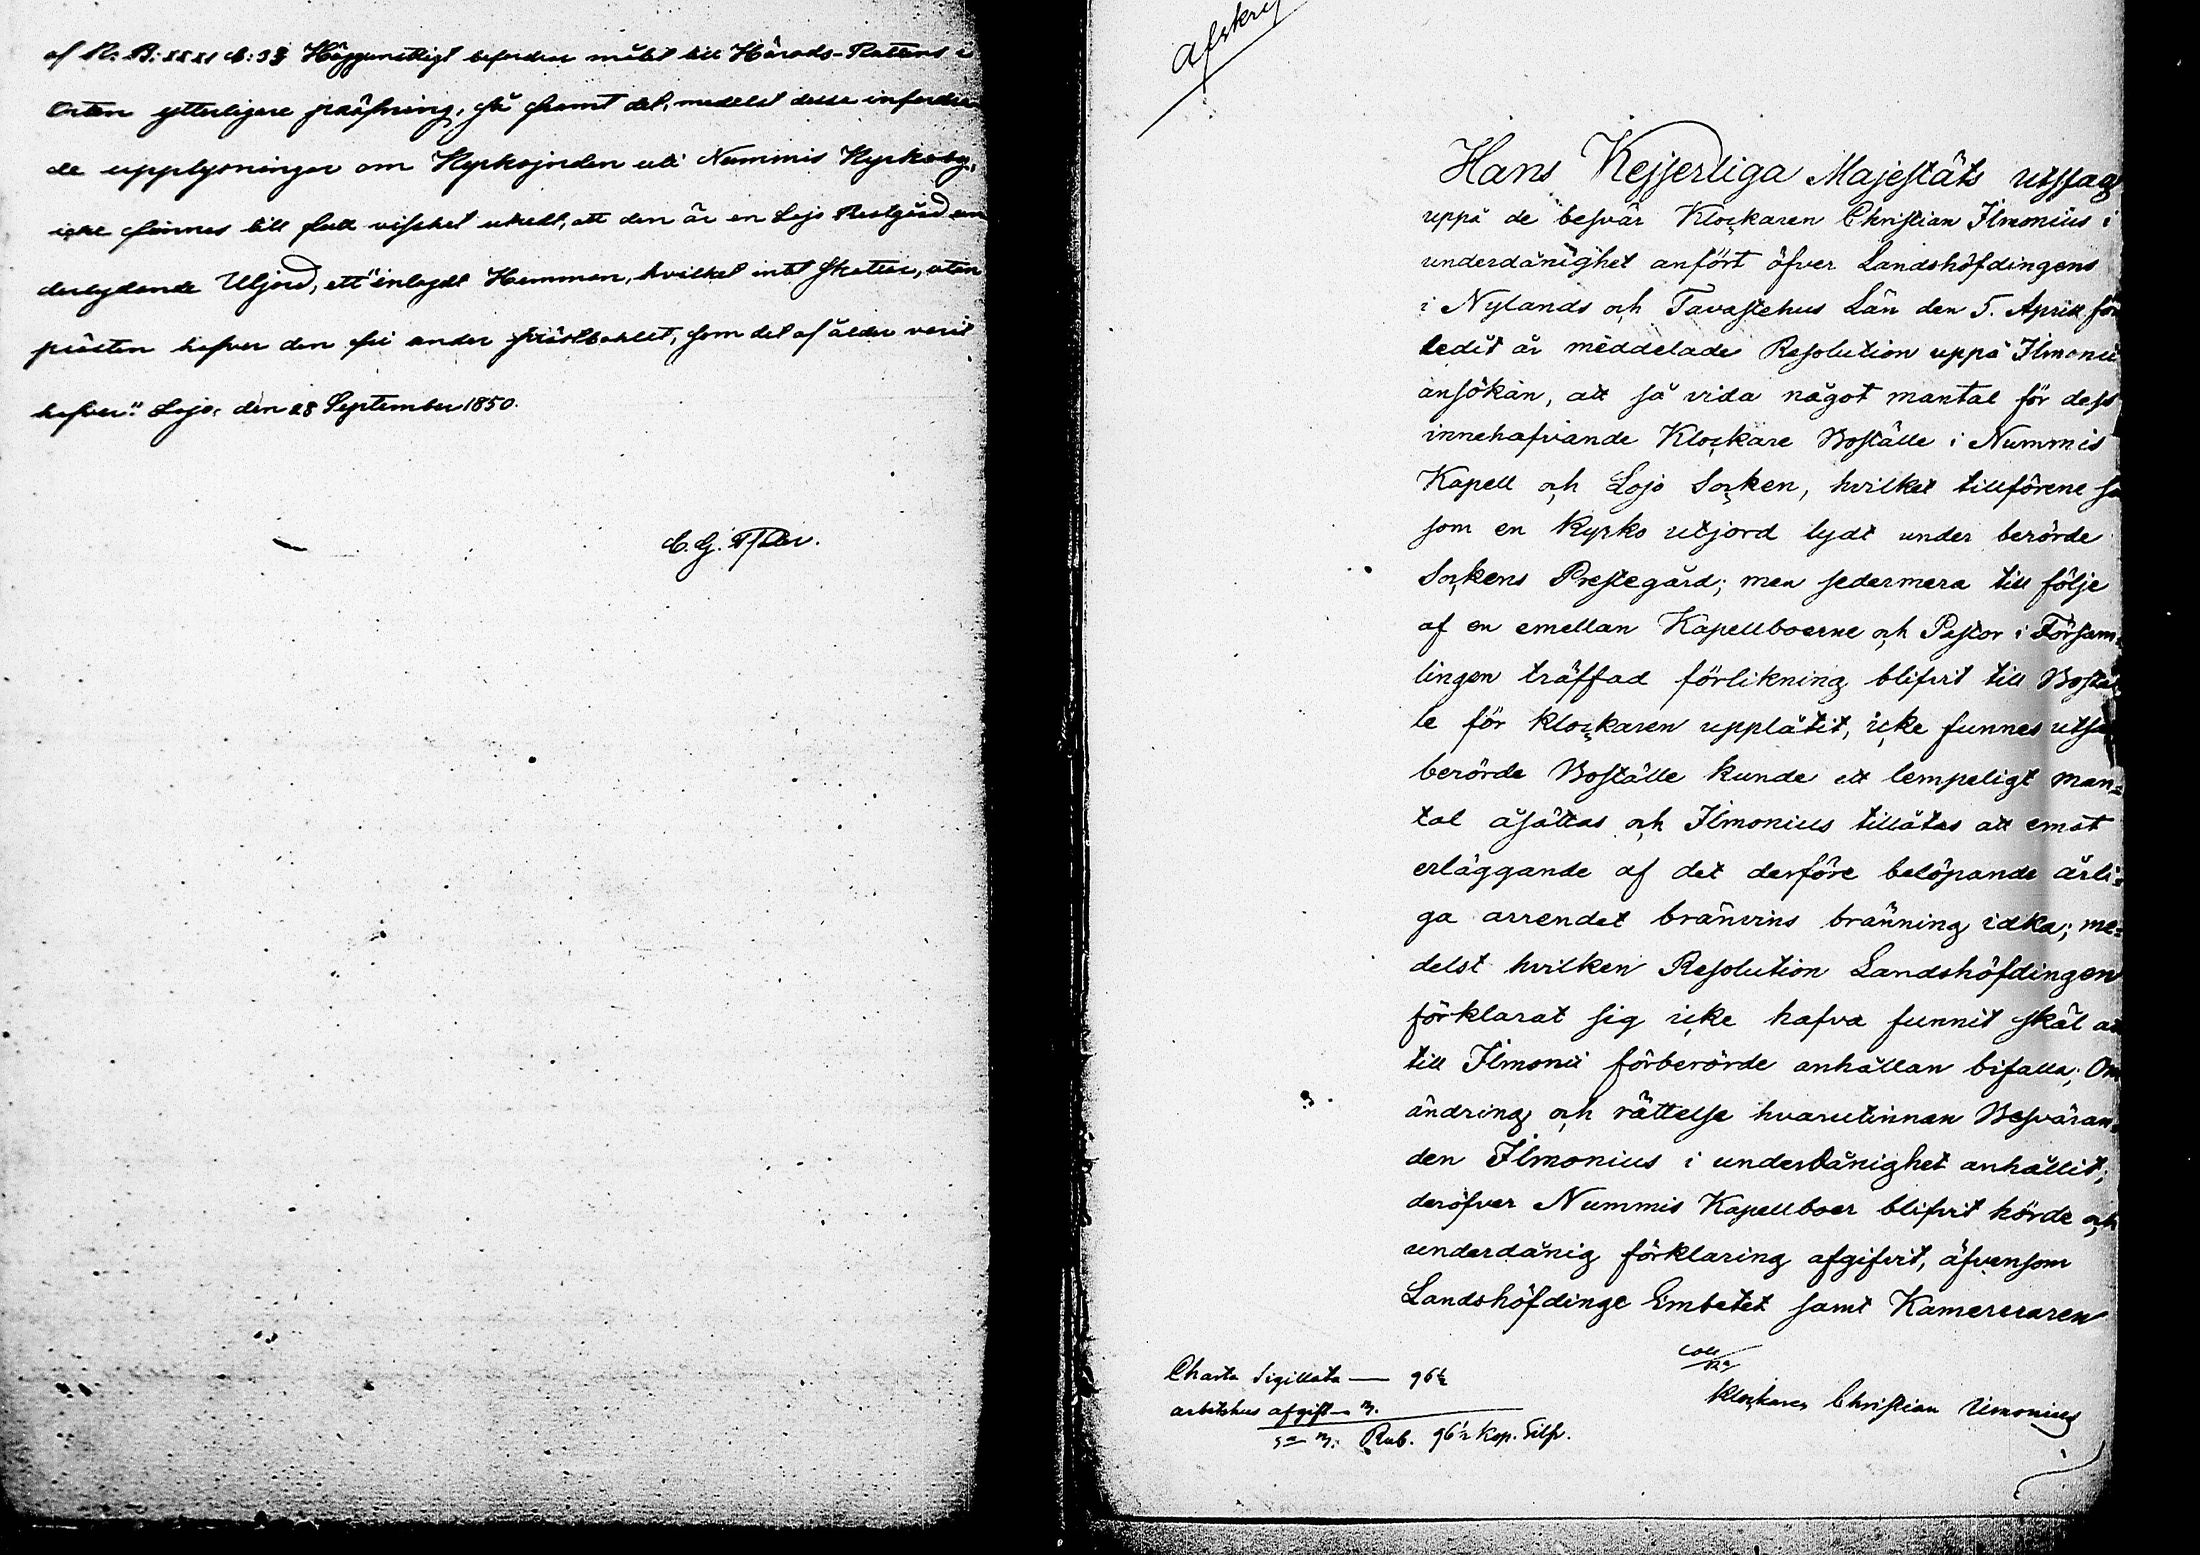 af R. B: XXXI C: 3 § Höggunstligt befordrar målet till Härads-Rättens i
Orten ytterligare pröfning, så framt det, medelst desse infordra
de upplysningar om Kyrkojorden uti Nummis Kyrkoby,
icke finnes till full visshet utredt, att den är en Lojo Prestgård un
derlydande Utjord, ett "inlagdt Hemman, hvilket intet skattar, utan
prästen hafver den fri under prästbohlet, som det af ålder varit
hafver." Lojo, den 28 September 1850.
C. G.
Afskrif
Hans Kejserliga Majestäts utslag
uppå de besvär Klockaren Christian Ilmonius i
underdånighet anfört öfver Landshöfdingens
i Nylands och Tavastehus Län den 5. April för
ledit år meddelade Resolution uppå Ilmonii
ansökan, att så vida något mantal för dess
innehafvande Klockare Boställe i Nummis
Kapell och Lojo Socken, hvilket tillförene så
som en Kyrko utjord lydt under berörde
Sockens Prestegård; men sedermera till följe
af en emellan Kapellboerne och Pastor i Försam-
lingen träffad förlikning blifvit till Bostäl
le för klockaren upplåtit, icke funnes utsa
berörde Boställe kunde ett lempeligt man-
tal åsättas och Ilmonius tillåtas att emot
erläggande af det derföre belöpande årli-
ga arrendet bränvins bränning idka; me-
delst hvilken Resolution Landshöfdingen
förklarat sig icke hafva funnit skäl at
till Ilmonii förberörde anhållan bifalla; Om
ändring och rättelse hvarutinnan Besväran-
den Ilmonius i underdånighet anhållit;
deröfver Nummis Kapellboer blifvit hörde och
underdånig förklaring afgifvit, äfvensom
Landshöfdinge Embetet samt Kamereraren
Charta Sigillata — 96½
arbetshus afgift — 3.
S:a 3. Rub. 96½ Kop. Silfr.
Klockaren Christian Ilmonius